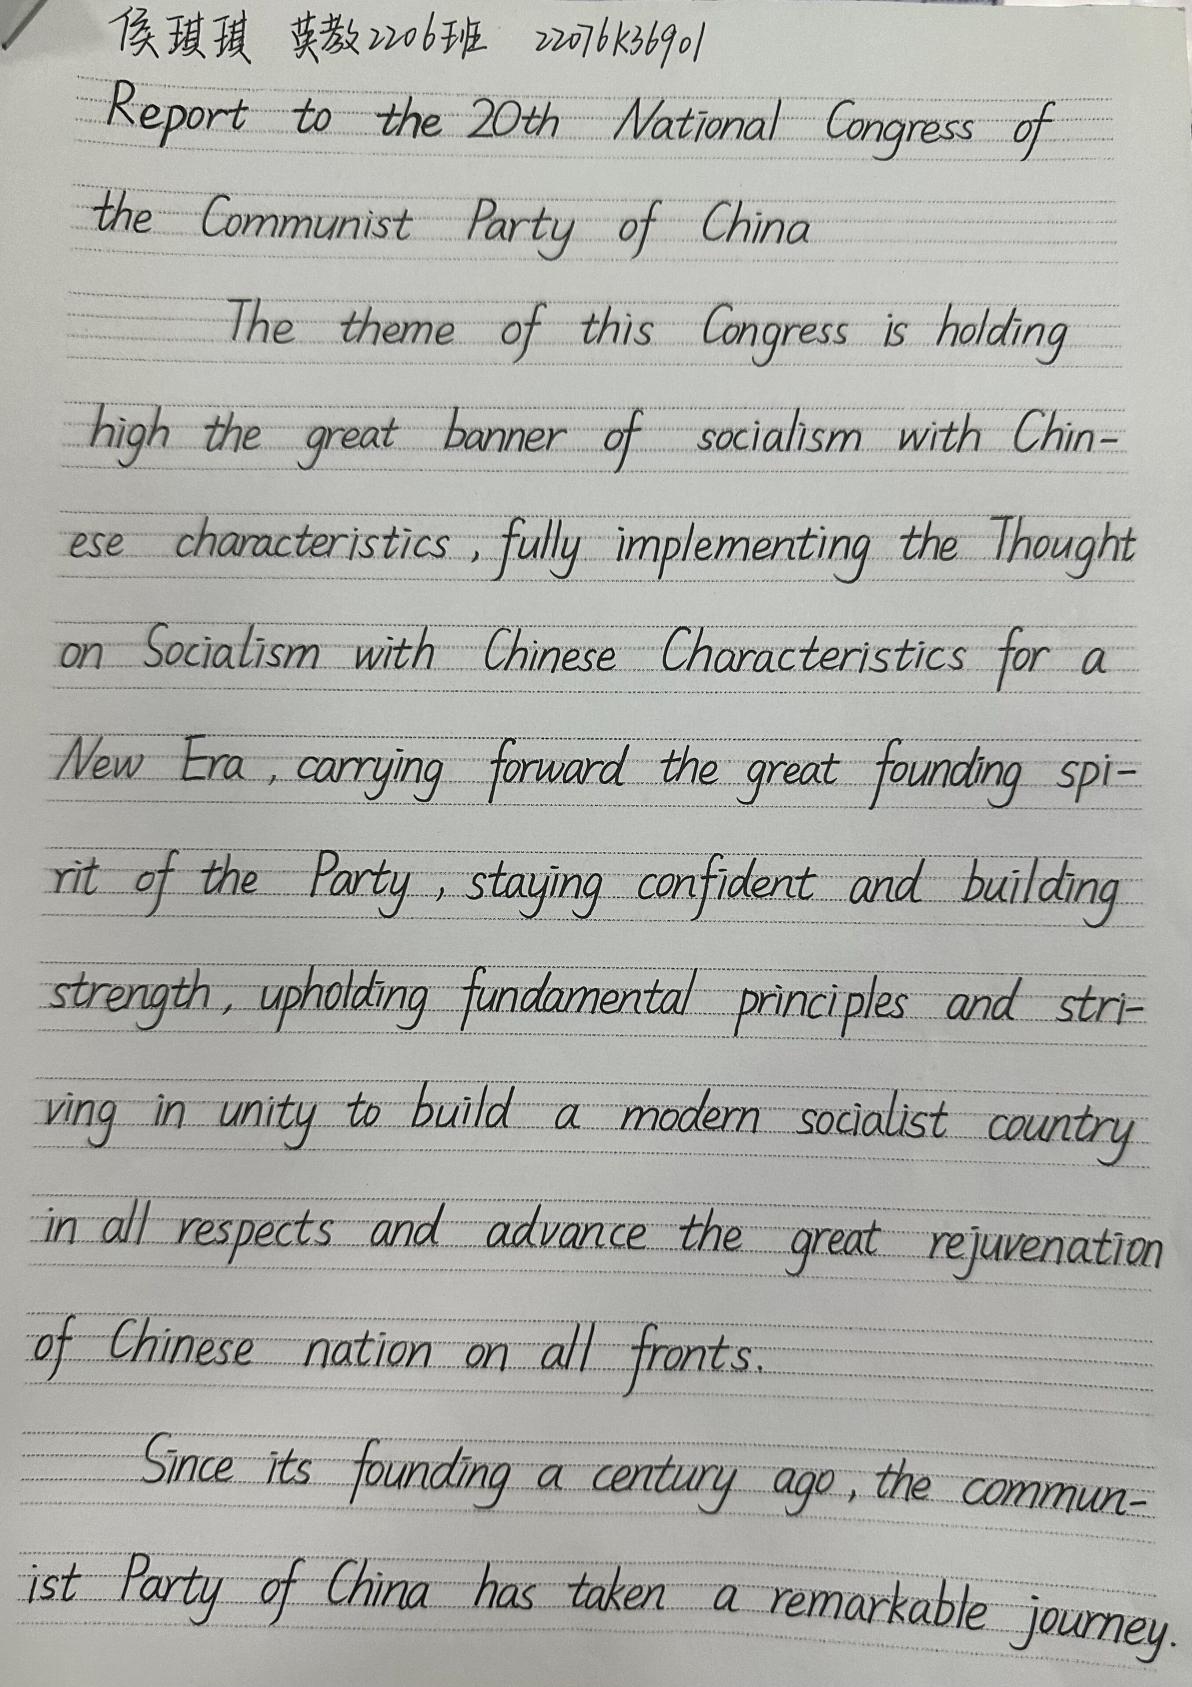 侯琪琪 英教2206班 22076k36901
Report to the 20th National Congress of
the Communist Party of China
The theme of this Congress is holding
high the great banner of socialism with Chin-
ese characteristics, fully implementing the Thought
on Socialism with Chinese Characteristics for a
New Era, carrying forward the great founding spi-
rit of the Party, staying confident and building
strength, upholding fundamental principles and stri-
ving in unity to build a modern socialist country
in all respects and advance the great rejuvenation
of Chinese nation on all fronts.
Since its founding a century ago, the commun-
ist Party of China has taken a remarkable journey.